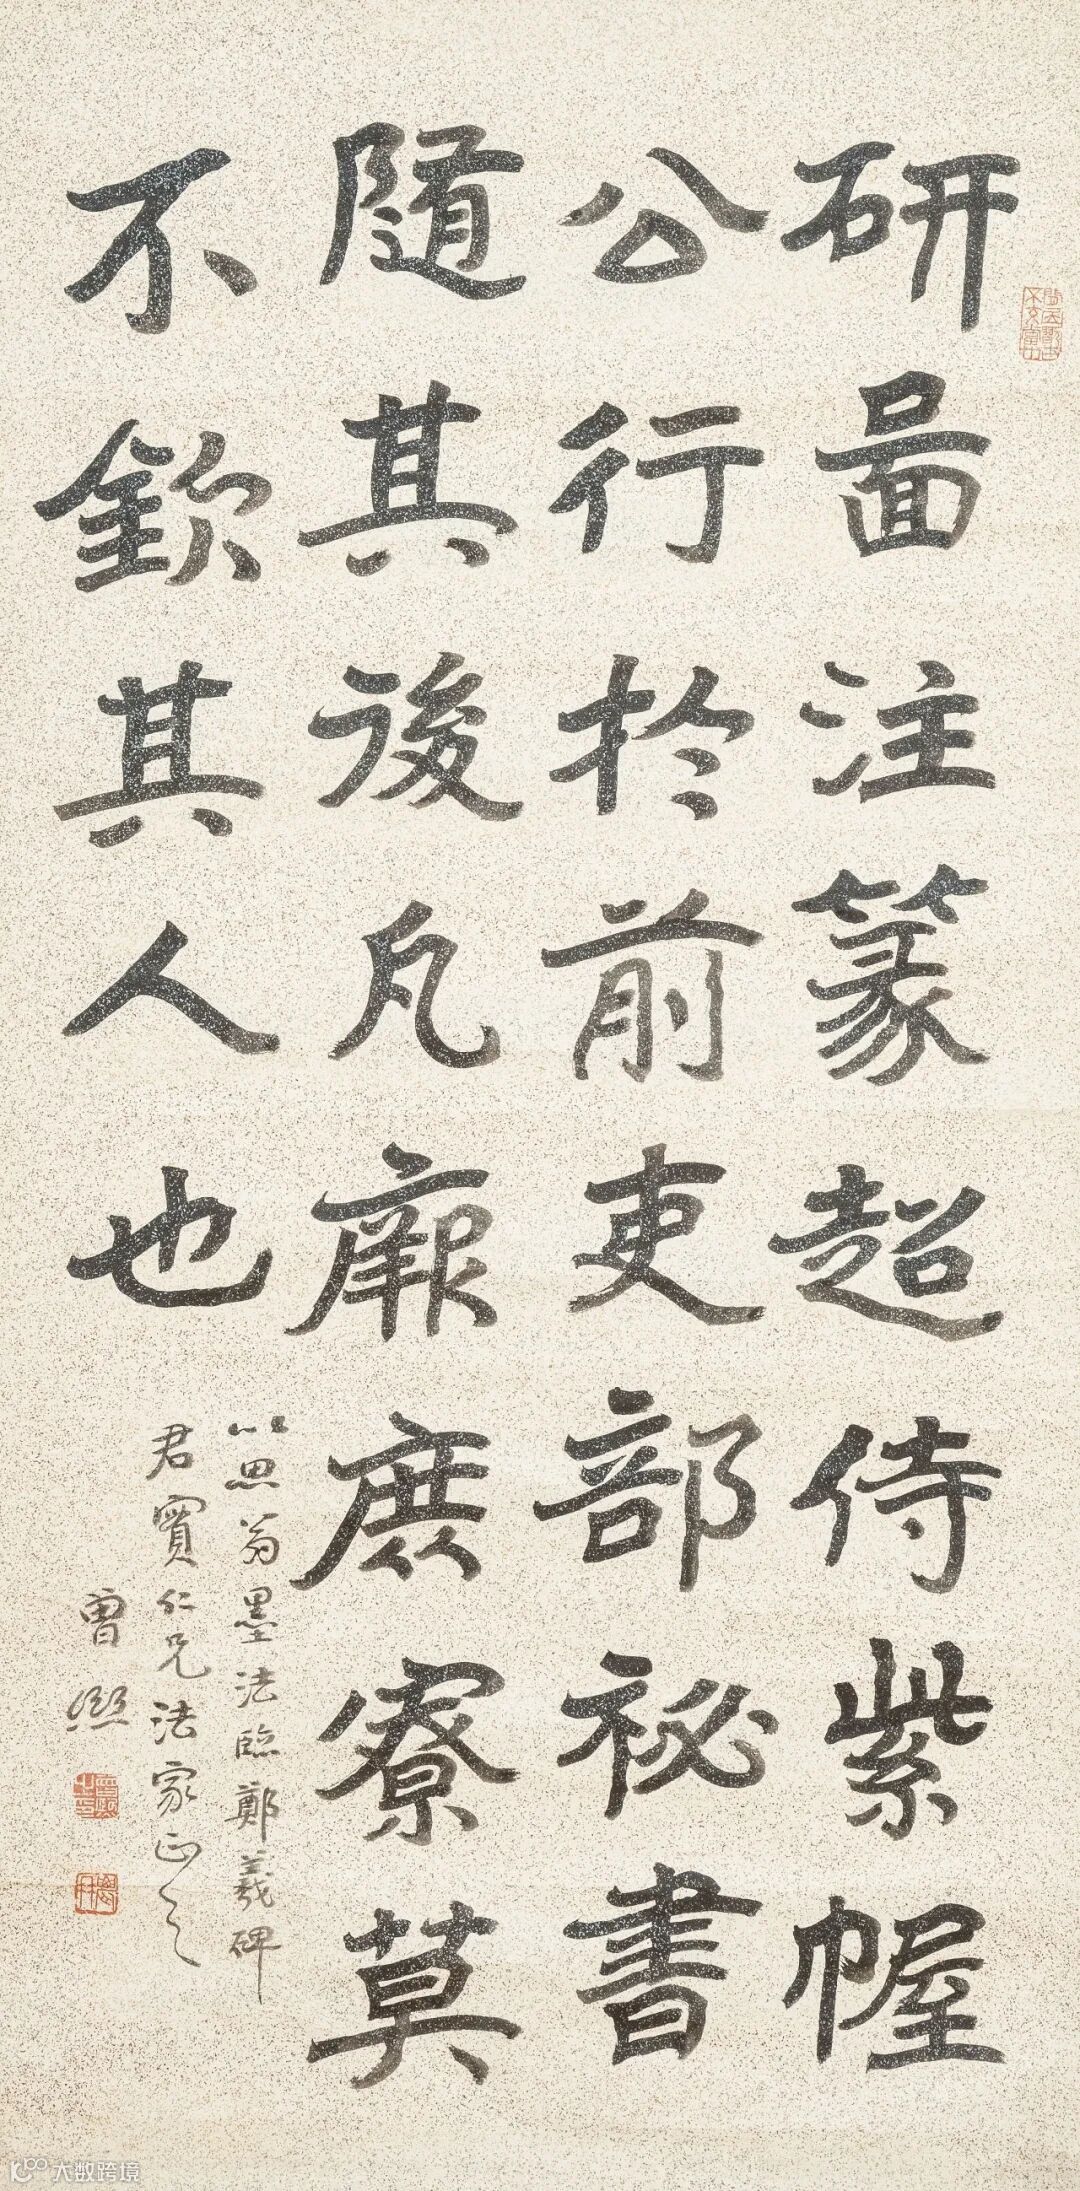 研啚注篆超侍紫幄
公行於前吏部祕書
随其後凡厥庶寮莫
不欽其人也
以思翁墨法臨鄭羲碑
君實仁兄法家正之
曾熙
大数跨境